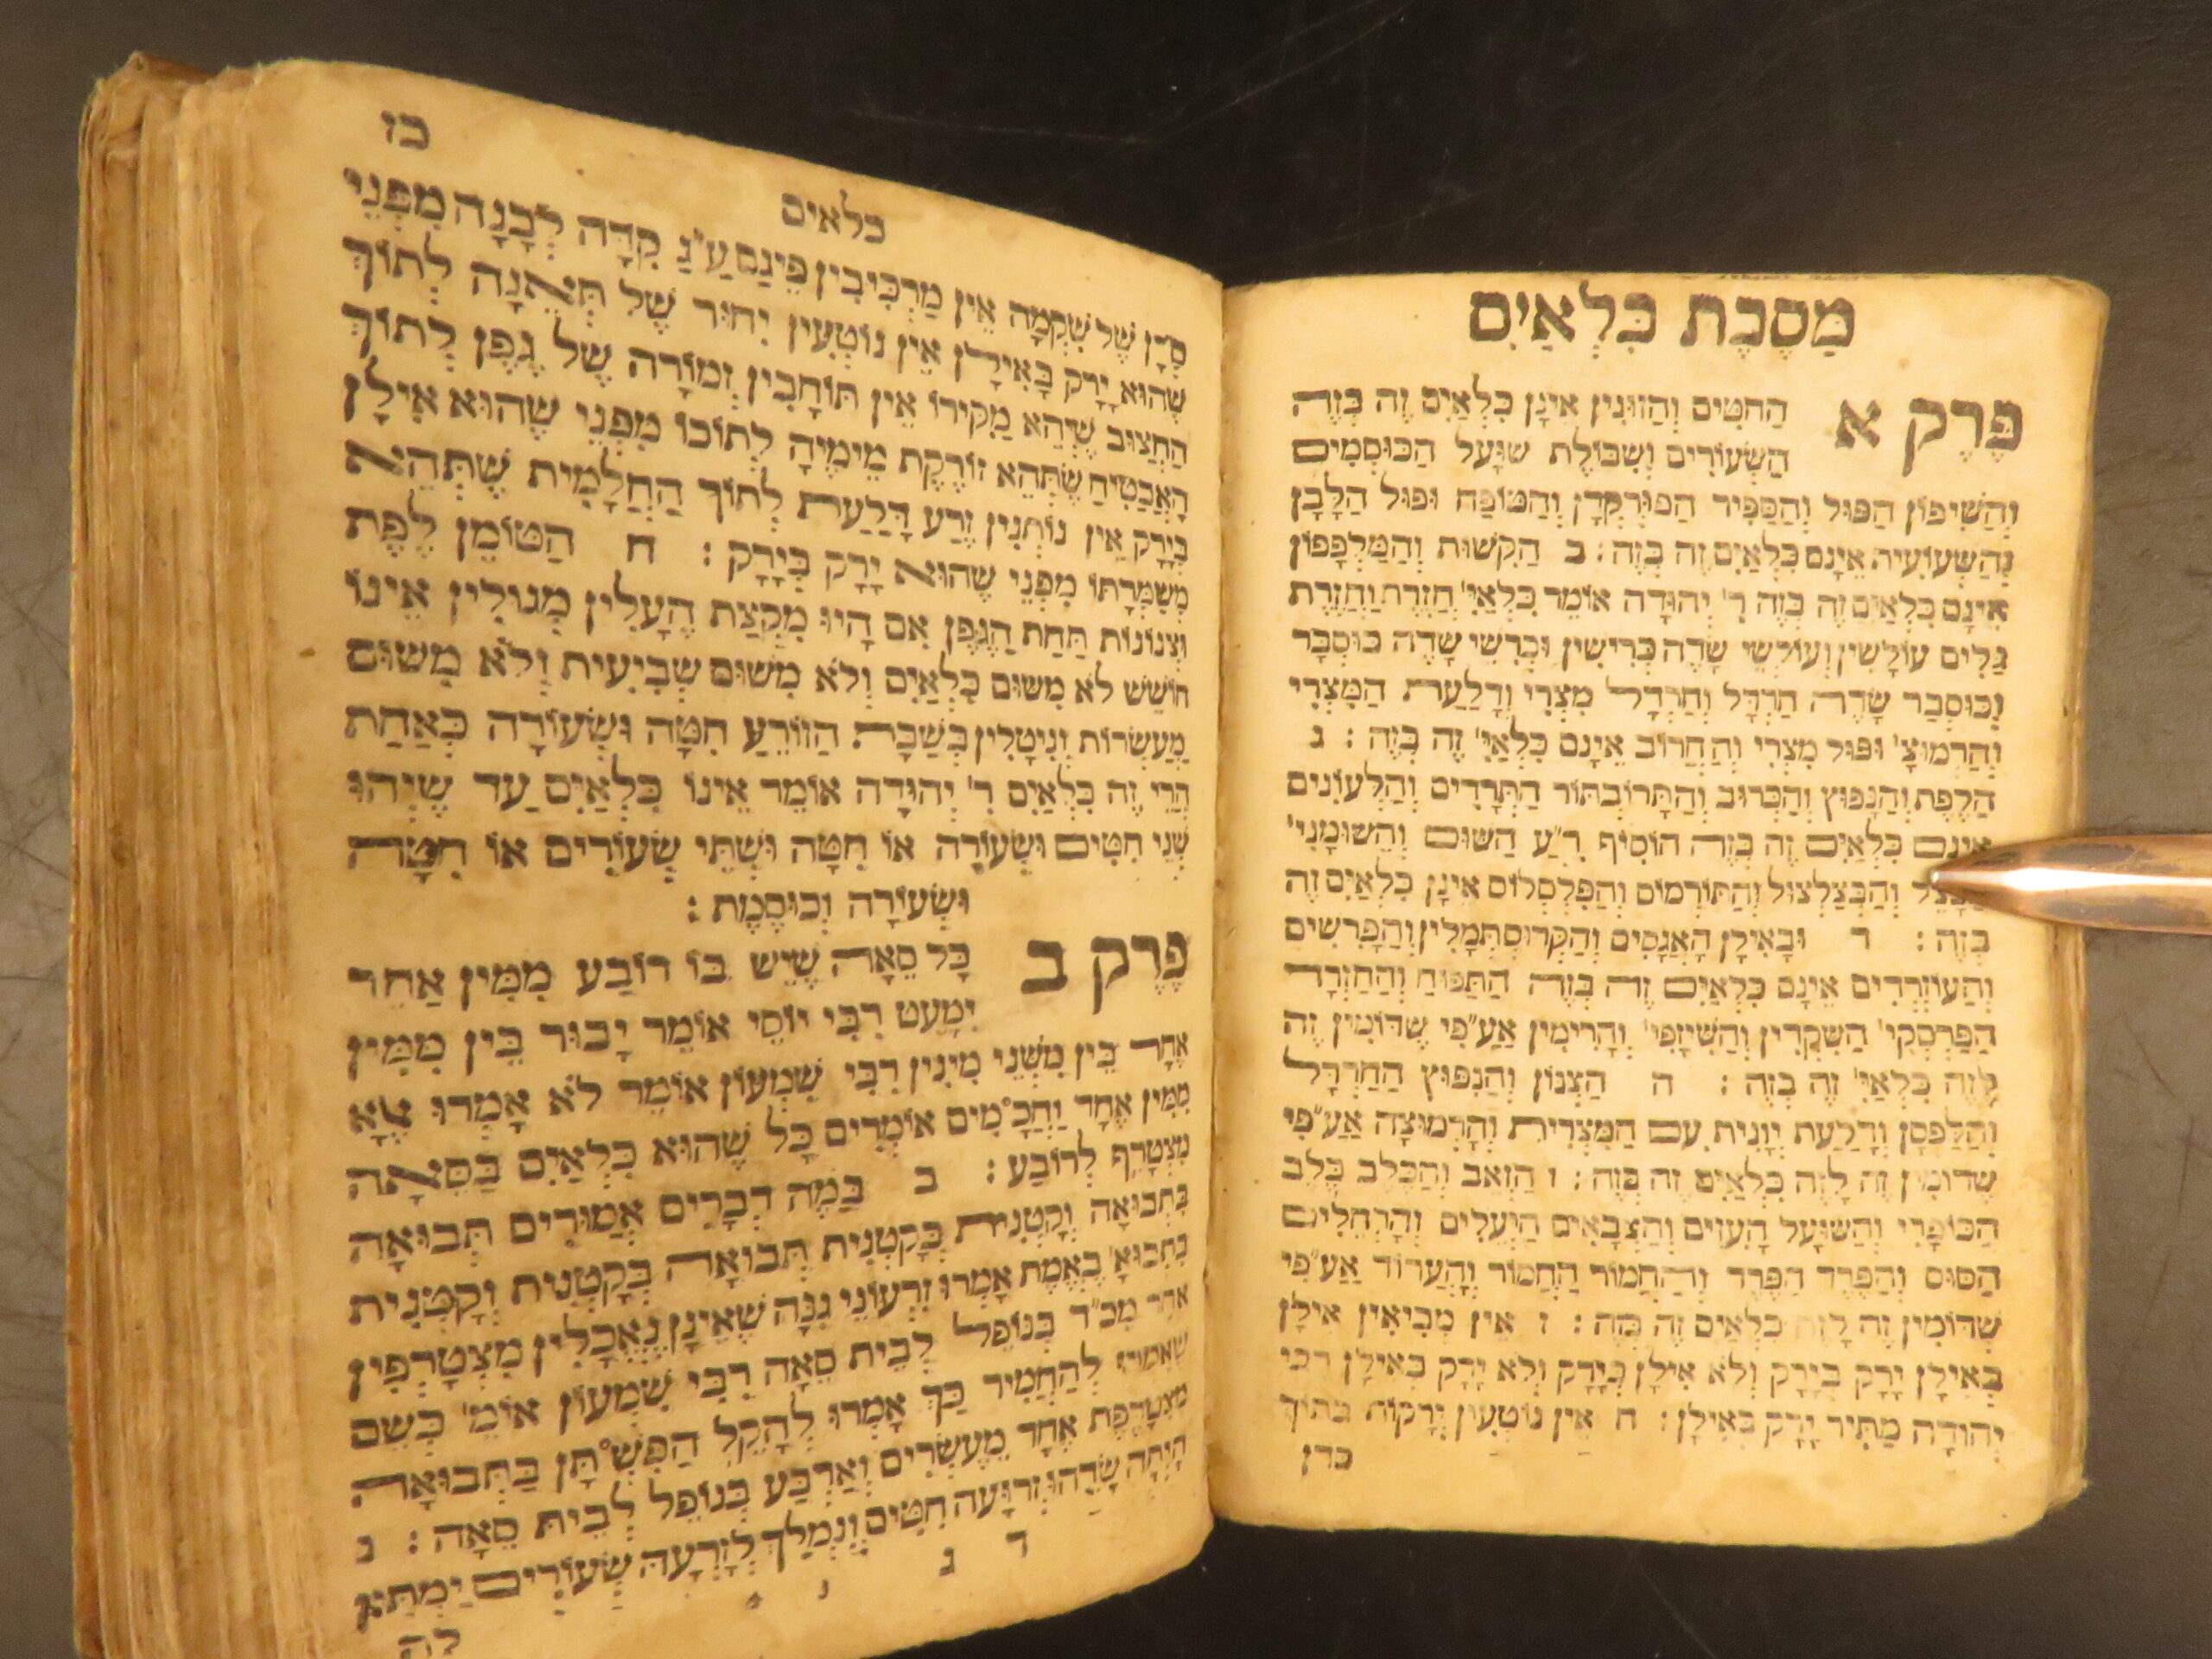 מַסֶכֶת כִּלְאַיִם
פֶּרֶק א
הַחִטִּים וְהַזוּנִין אֵינָן כִּלְאַיִם זֶה בְּזֶה
הַשְּׂעוֹרִים וְשִׁבּוֹלֶת שׁוּעָל הַכּוּסְמִים
וְהַשִּׁיפוֹן הַפּוּל וְהַסַּפִּיר הַפּוּרְקְדָן וְהַטּוֹפַח וּפוּל הַלָּבָן
וְהַשְּׁעוֹעִית אֵינָם כִּלְאַיִם זֶה בְּזֶה : ב הַקִּשּׁוּת וְהַמַּלְפְּפוֹן
אֵינָם כִּלְאַיִם זֶה בָּזֶה ר' יְהוּדָה אוֹמֵר כִּלְאַיִ' חֲזֶרֶת וַחֲזֶרֶת
גַּלִּים עוֹלָשִׁין וְעוֹלְשֵׁי שָׂדֶה כְּרֵישִׁין וּכְרֵשֵׁי שָׂדֶה כּוּסְבָּר
וְכוּסְבַּר שָׂדֶה חַרְדָּל וְחַרְדָּל מִצְרִי וְדַלַעַת הַמִּצְרִי
וְהָרְמוּצָ' וּפּוּל מִצְרִי וְהַחֲרוּב אֵינָם כִּלְאַיִ' זֶה בְּזֶה : ג
הַלֶּפֶת וְהַנָּפּוּץ וְהַכְּרוּב וְהַתְּרוֹבְתּוֹר הַתְּרָדִים וְהַלְּעוּנִים
אֵינָם כִּלְאַיִם זֶה בְּזֶה הוֹסִיף ר"ע הַשּׁוּם וְהַשּׁוּמָנִי'
וְהַבְּצַלְצוּל וְהַתּוּרְמוֹס וְהַפְּלַסְלוֹס אֵינָן כִּלְאַיִם זֶה
בְּזֶה : ד וּבָאִילָן הָאֲגָסִים וְהַקְּרוּסְתְּמָלִין וְהַפָּרִשִׁים
וְהָעוּזְרָדִים אֵינָם כִּלְאַיִם זֶה בְּזֶה הַתַּפּוּחַ וְהַחַזְרָד
הַפַּרְסְקִי' הַשְּׁקֵדִין וְהַשִּׁיזָפִי' וְהָרִימִין אַעַ"פִי שֶׁדּוֹמִין זֶה
לָזֶה כִּלְאַיִ' זֶה בְּזֶה : ה הַצְּנוֹן וְהַנָּפּוּץ הַחַרְדָּל
וְהַלַּפְסָן וְדַלַעַת יְוָנִית עִם הַמִּצְרִית וְהָרְמוּצָה אַעַ"פִי
שֶׁדּוֹמִין זֶה לָזֶה כִּלְאַיִם זֶה בְּזֶה : ו הַזְּאֵב וְהַכֶּלֶב כֶּלֶב
הַכּוּפָרִי וְהַשּׁוּעָל הָעִזִּים וְהַצְּבָאִים הַיְּעֵלִים וְהָרְחֵלִים
הַסּוּס וְהַפֶּרֶד הַפֶּרֶד וְהַחֲמוֹר הַחֲמוֹר וְהֶעָרוֹד אַעַ"פִי
שֶׁדּוֹמִין זֶה לָזֶה כִּלְאַיִם זֶה בָּזֶה : ז אֵין מְבִיאִין אִילָן
בְּאִילָן יָרָק בְּיָרָק וְלֹא אִילָן בְּיָרָק וְלֹא יָרָק בְּאִילָן רַבִּי
יְהוּדָה מַתִּיר יָרָק בְּאִילָן : ח אֵין נוֹטְעִין יְרָקוֹת בְּתוֹךְ
סדן
כז
כלאים
סַדָּן שֶׁל שִׁקְמָה אֵין מַרְכִּיבִין פֵּיגַם עַ"ג קִדָּה לְבָנָה מִפְּנֵי
שֶׁהוּא יָרָק בָּאִילָן אֵין נוֹטְעִין יִחוּר שֶׁל תְּאֵנָה לְתוֹךְ
הַחֲצוּב שֶׁיְּהֵא מַקִּירוֹ אֵין תּוֹחֲבִין זְמוֹרָה שֶׁל גֶּפֶן לְתוֹךְ
הָאֲבַטִּיחַ שֶׁתְּהֵא זוֹרֶקֶת מֵימֶיהָ לְתוֹכוֹ מִפְּנֵי שֶׁהוּא אִילָן
בְּיָרָק אֵין נוֹתְנִין זֶרַע דַּלַעַת לְתוֹךְ הַחֲלָמִית שֶׁתְּהֵא
מְשַׁמַּרְתּוֹ מִפְּנֵי שֶׁהוּא יָרָק בְּיָרָק : ח הַטּוֹמֵן לֶפֶת
וּצְנוֹנוֹת תַּחַת הַגֶּפֶן אִם הָיוּ מִקְצַת הֶעָלִין מְגוּלִין אֵינוֹ
חוֹשֵׁשׁ לֹא מִשּׁוּם כִּלְאַיִם וְלֹא מִשּׁוּם שְׁבִיעִית וְלֹא מִשּׁוּם
מַעַשְׂרוֹת וְנִיטָלִין בְּשַׁבָּת הַזּוֹרֵעַ חִטָּה וּשְׂעוֹרָה כְּאַחַת
הֲרֵי זֶה כִּלְאַיִם ר' יְהוּדָה אוֹמֵר אֵינוֹ כִּלְאַיִם עַד שֶׁיְּהוּ
שְׁנֵי חִטִּים וּשְׂעוֹרָה אוֹ חִטָּה וּשְׁתֵּי שְׂעוֹרִים אוֹ חִטָּה
וּשְׂעוֹרָה וְכוּסֶמֶת :
פֶּרֶק ב
כָּל סְאָה שֶׁיֵּשׁ בּוֹ רוֹבַע מִמִּין אַחֵר
יְמַעֵט רַבִּי יוֹסֵי אוֹמֵר יָבוּר בֵּין מִמִּין
אֶחָד בֵּין מִשְּׁנֵי מִינִין רַבִּי שִׁמְעוֹן אוֹמֵר לֹא אָמְרוּ אֶלָּא
מִמִּין אֶחָד וַחֲכָמִים אוֹמְרִים כָּל שֶׁהוּא כִּלְאַיִם בַּסְּאָה
מִצְטָרֵף לְרוֹבַע : ב בַּמֶּה דְּבָרִים אֲמוּרִים תְּבוּאָה
בִּתְבוּאָה וְקִטְנִית בְּקִטְנִית תְּבוּאָה בְּקִטְנִית וְקִטְנִית
בִּתְבוּאָ' בֶּאֱמֶת אָמְרוּ זֵרְעוֹנֵי גִנָּה שֶׁאֵינָן נֶאֱכָלִין מִצְטָרְפִין
אחד מכ"ד בְּנוֹפֵל לְבֵית סְאָה רַבִּי שִׁמְעוֹן אוֹמֵ' כְּשֵׁם
שֶׁאָמְרוּ לְהַחֲמִיר כָּךְ אָמְרוּ לְהָקֵל הַפִּשְׁתָּן בַּתְּבוּאָה
מִצְטָרֶפֶת אֶחָד מֵעֶשְׂרִים וְאַרְבַּע בְּנוֹפֵל לְבֵית סְאָה : ג
הָיְתָה שָׂדֵהוּ זְרוּעָה חִטִּים וְנִמְלַךְ לְזָרְעָהּ שְׂעוֹרִים יַמְתִּין
ד ג
לה